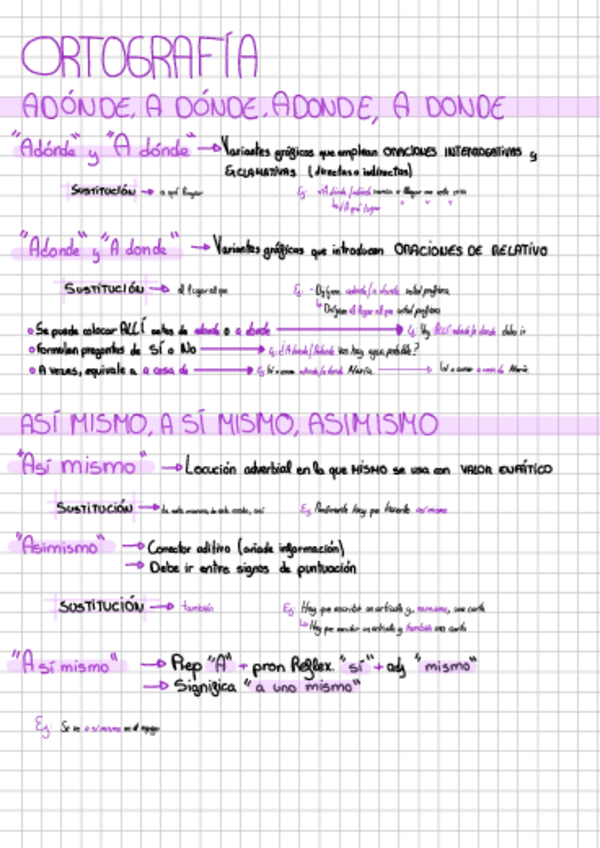 ORTOGRAFÍA
ADÓNDE, A DÓNDE, ADONDE, A DONDE
"Adónde" y "A dónde" → Variantes gráficas que emplean ORACIONES INTERROGATIVAS y
EXCLAMATIVAS (directas o indirectas)
SUSTITUCIÓN → a qué lugar Ej:
"Adonde" y "A donde" → Variantes gráficas que introducen ORACIONES DE RELATIVO
SUSTITUCIÓN → al lugar al que Ej: - Diríjase adonde/a donde usted prefiera
Diríjase al lugar al que usted prefiera
• Se puede colocar ALLÍ antes de adonde o a donde → Ej: Voy ALLÍ adonde/a donde debo ir
• Formulan preguntas de SÍ o NO → Ej: ¿A donde/Adonde vas hay agua potable?
• A veces, equivale a a casa de → Ej: adonde/a donde María → a casa de María
ASÍ MISMO, A SÍ MISMO, ASIMISMO
"Así mismo" → Locución adverbial en la que MISMO se usa con VALOR ENFÁTICO
SUSTITUCIÓN → de esta manera, de este modo, así Ej: Realmente hay que hacerlo así mismo
"Asimismo" → Conector aditivo (añade información)
→ Debe ir entre signos de puntuación
SUSTITUCIÓN → también Ej: Hay que escribir un artículo y, asimismo, una carta
Hay que escribir un artículo y también una carta
"A sí mismo" → Prep "A" + pron Reflex. "sí" + adj "mismo"
→ Significa "a uno mismo"
Ej: Se ve a sí mismo en el espejo